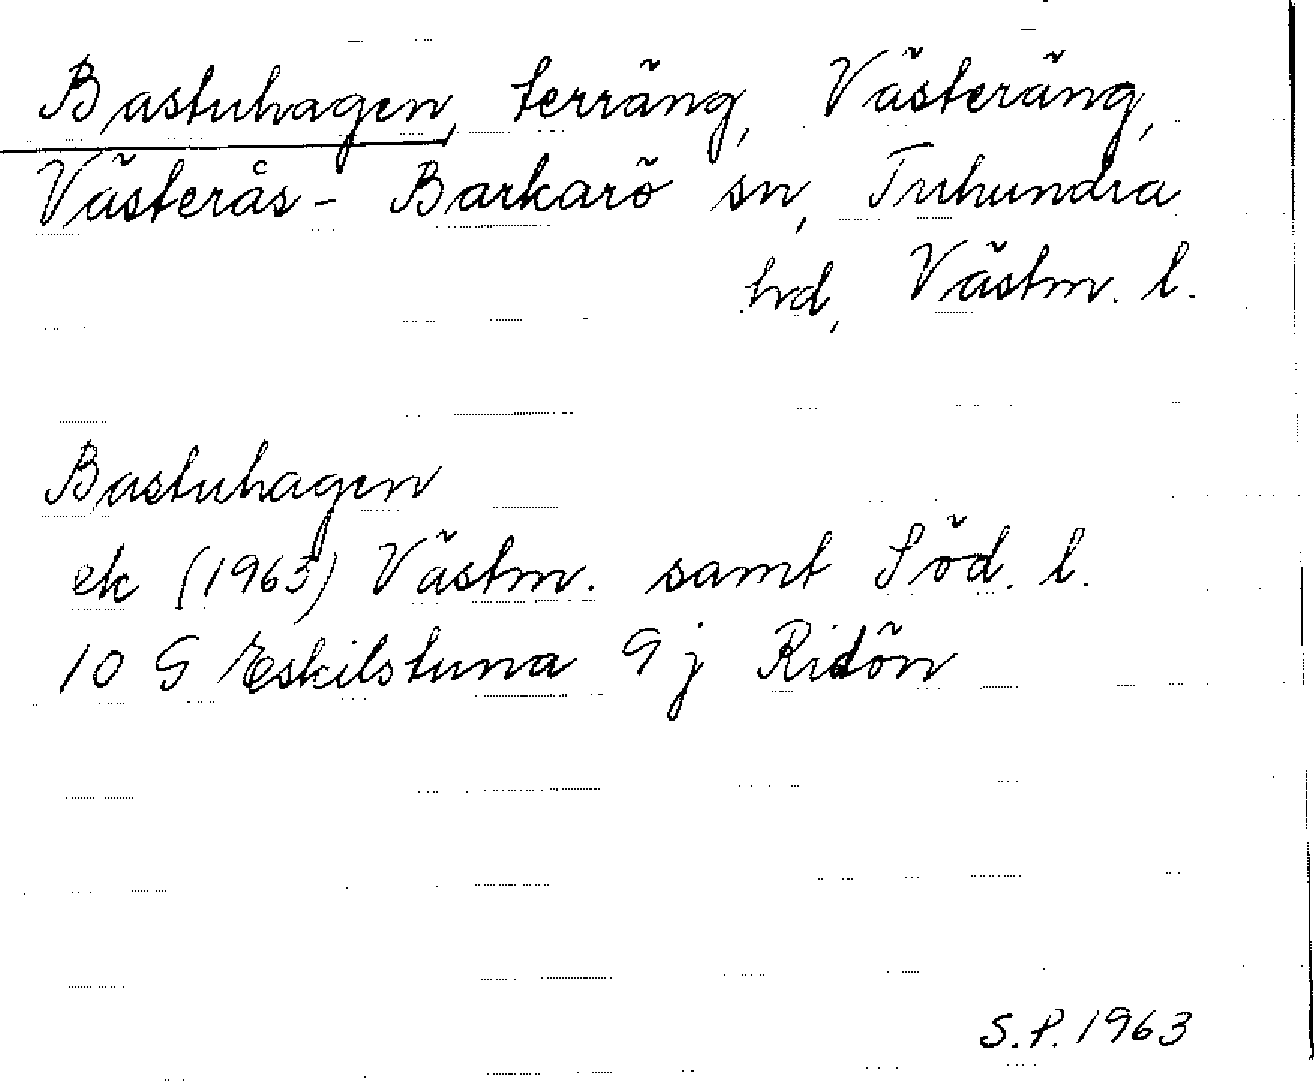 Bastuhagen, terräng, Västeräng,
Västerås-Barkarö sn, Tuhundra
hd, Västm. l.
Bastuhagen
ek (1963) Västm. samt Söd. l.
10 G Eskilstuna 9 j Ridön
S.P. 1963